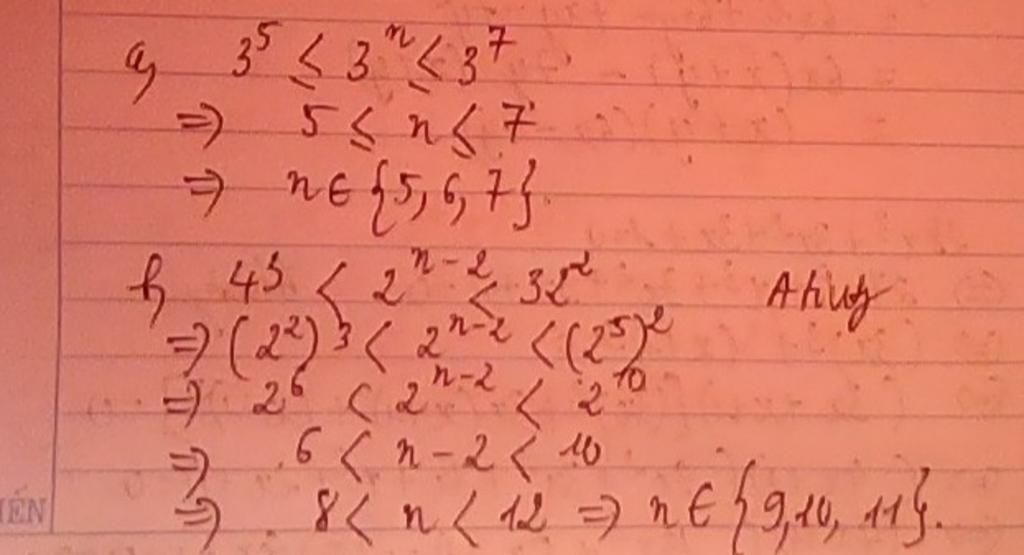 a, 3^5 ≤ 3^n ≤ 3^7
=> 5 ≤ n ≤ 7
=> n ∈ {5, 6, 7}.
b, 4^3 < 2^{n-2} < 32^2
=> (2^2)^3 < 2^{n-2} < (2^5)^2
=> 2^6 < 2^{n-2} < 2^{10}
=> 6 < n - 2 < 10
=> 8 < n < 12 => n ∈ {9, 10, 11}.